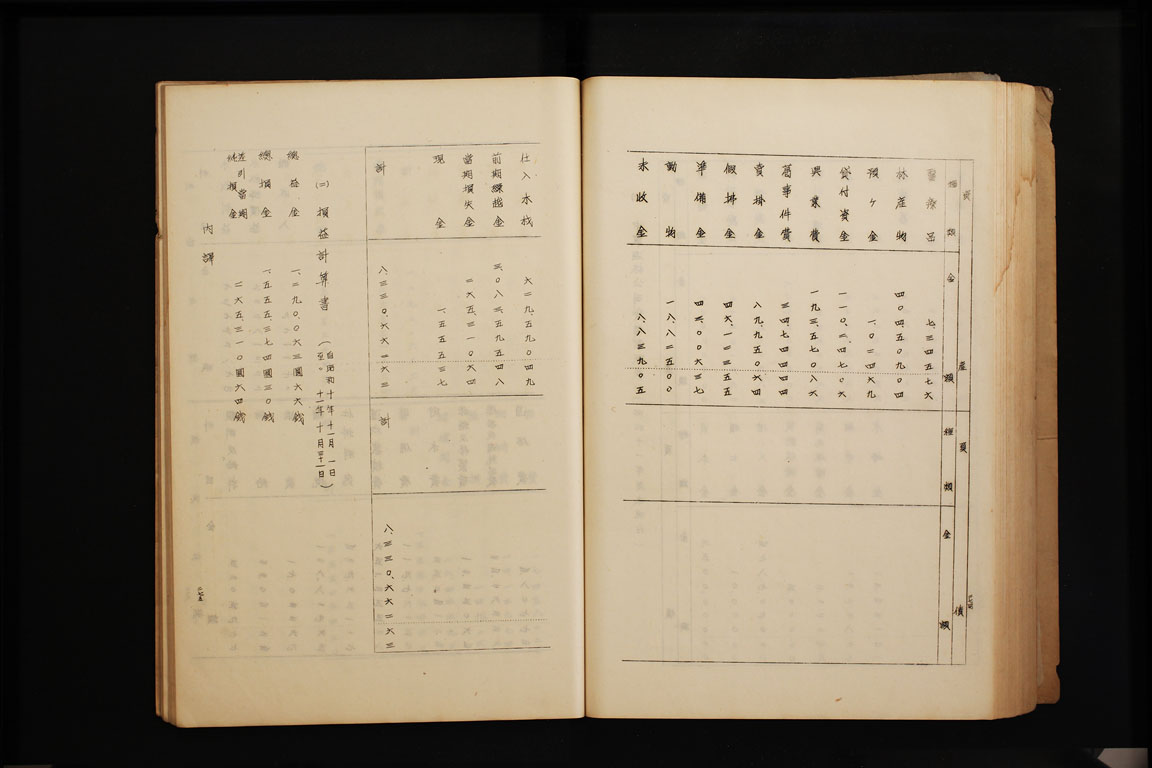 資産 負債
種類 金額 種類 金額
林産物 四〇四、五〇九〇四
預ケ金 一、〇二四六九
貸付資金 一一〇、二四七〇六
興業費 一九三、五七〇八六
舊事件費 三四、七四四四四
賣掛金 八九、九五〇六四
假拂金 四六、一二三五五
準備金 四三、〇〇六三七
動物 一八、八二五〇〇
未收金 八、八三九〇五
仕入木材 六二九、五九〇四九
前期繰越金 三、〇八三、五九五四八
當期損失金 二六五、三一〇六四
現金 一、五五五三七
計 八、三三〇、六六二六三 計 八、三三〇、六六二六三
(二) 損益計算書 (自昭和十年十一月一日 至〃十一年十月三十一日)
總益金 一、二九〇、〇六三圓六六錢
總損金 一、五五五、三七四圓三〇錢
差引當期純損金 二六五、三一〇圓六四錢
内譯